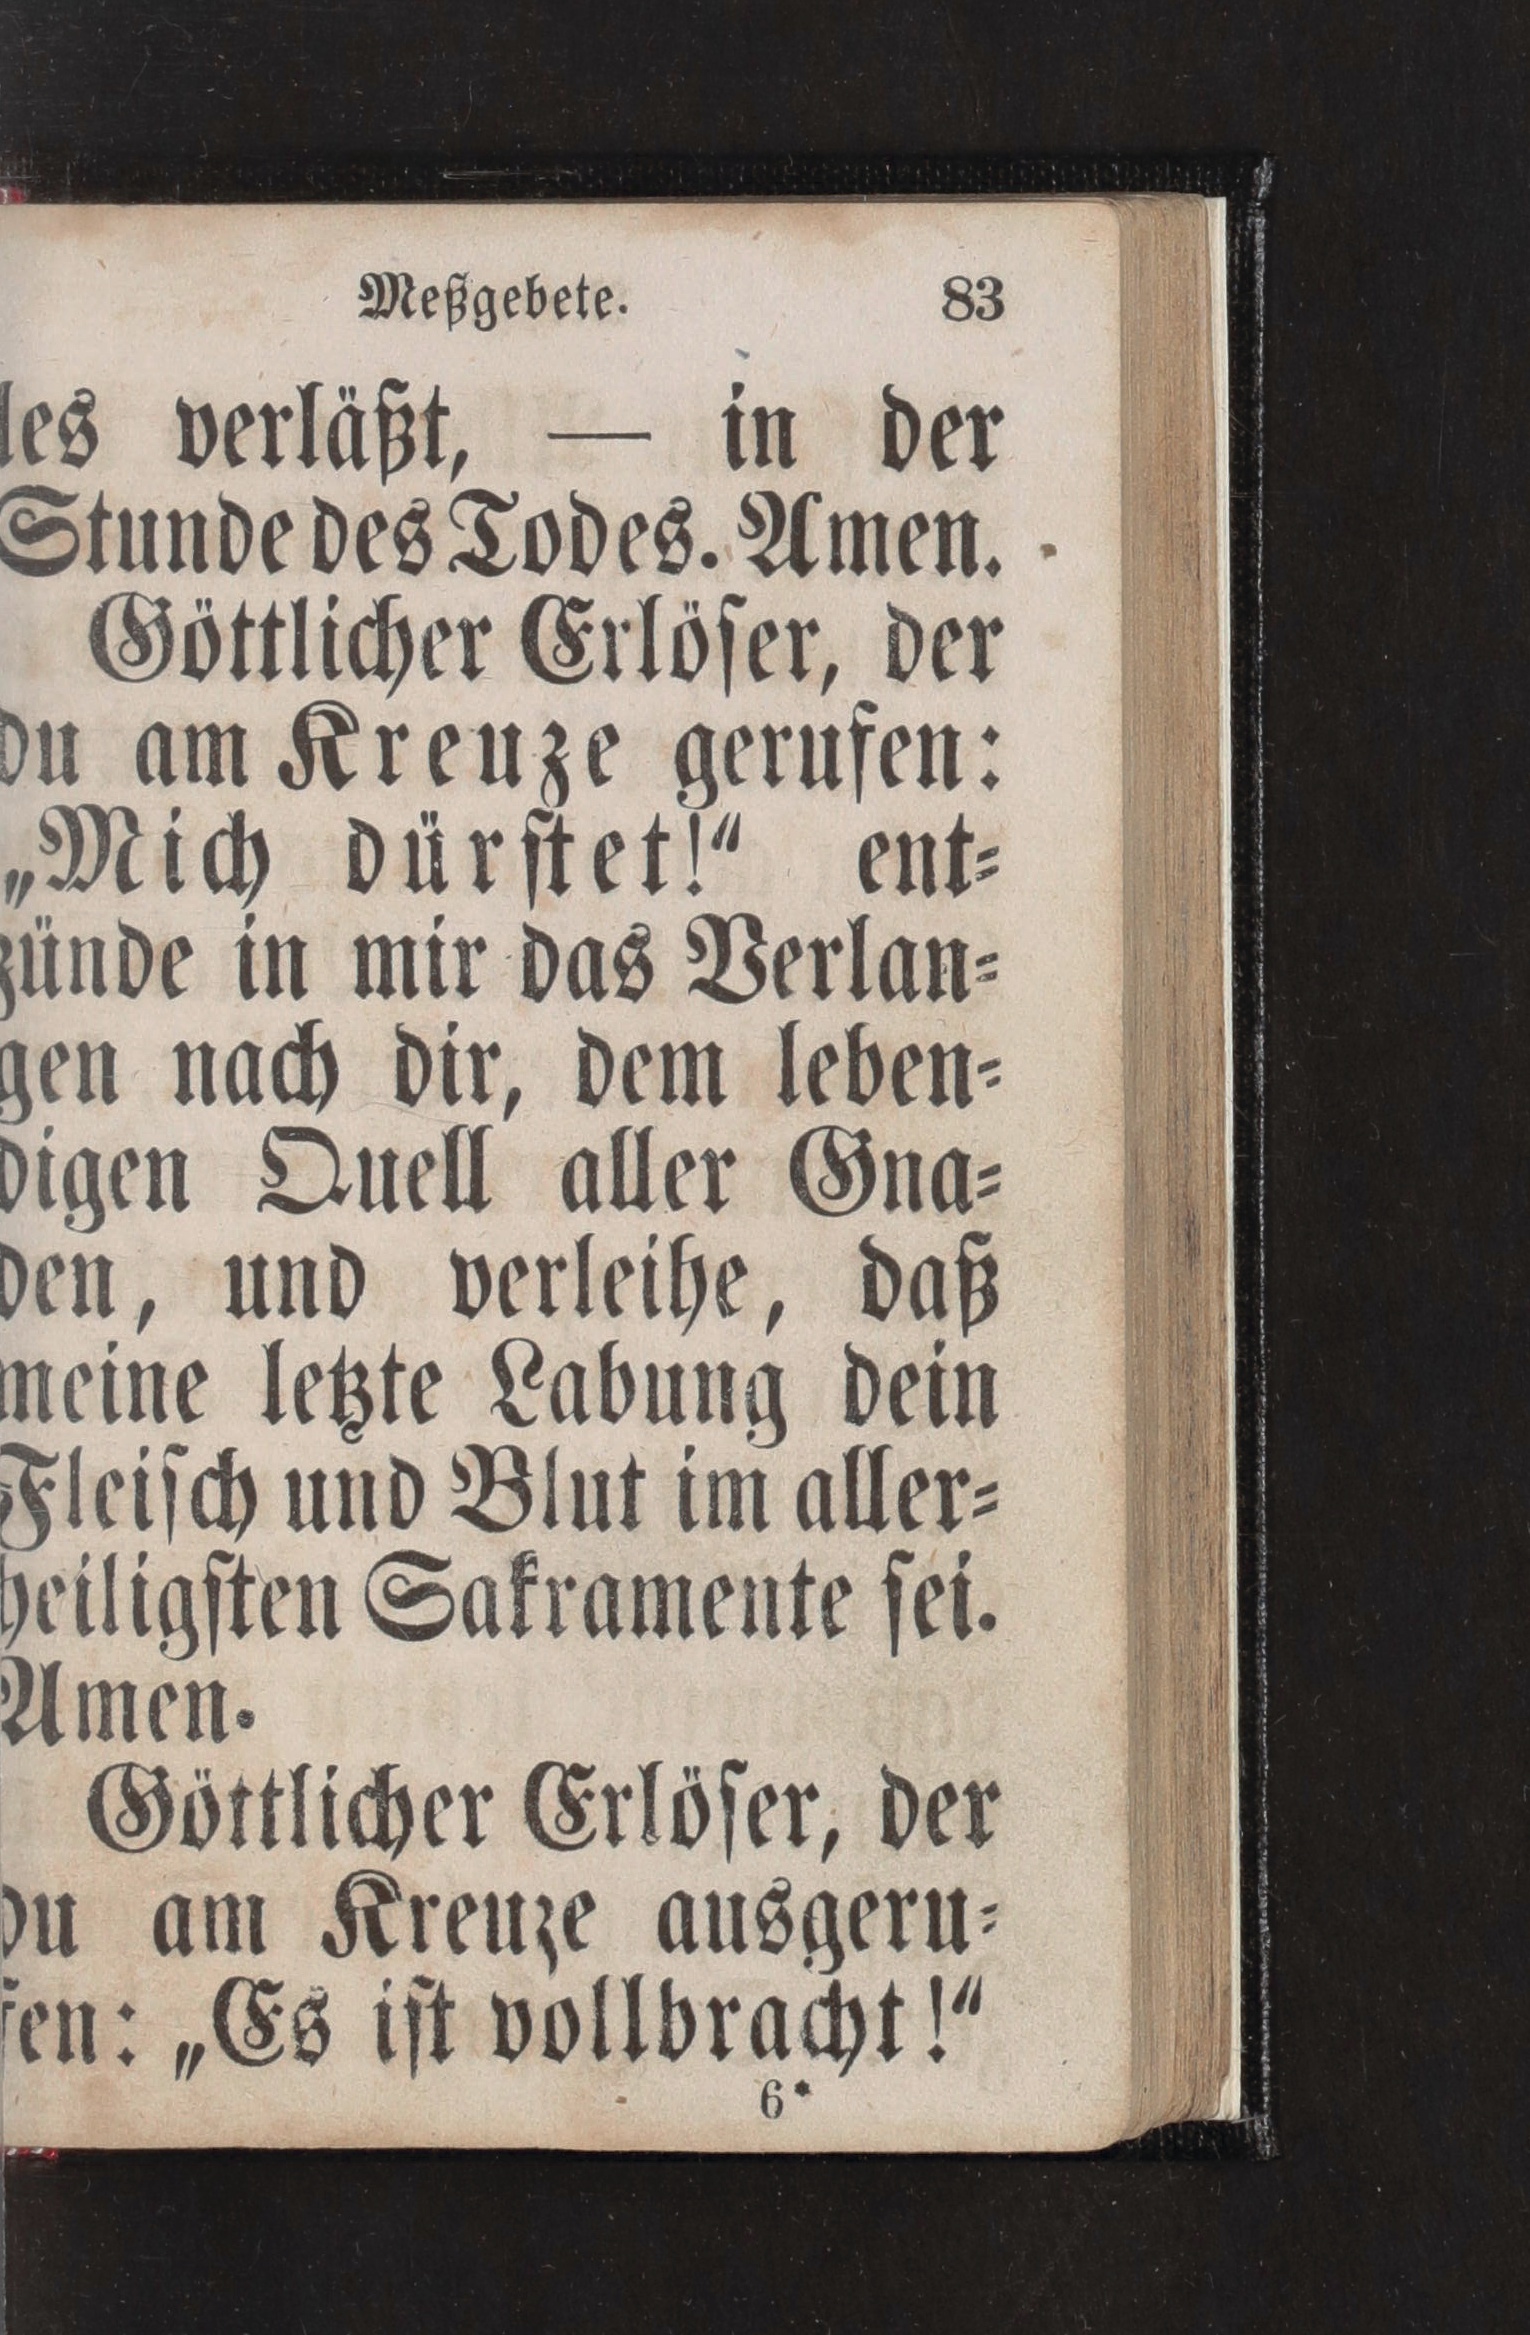 Meßgebete. 83
les verläßt, — in der
Stunde des Todes. Amen.
Göttlicher Erlöser, der
du am Kreuze gerufen:
„Mich dürstet!“ ent-
zünde in mir das Verlan-
gen nach dir, dem leben-
digen Quell aller Gna-
den, und verleihe, daß
meine letzte Labung dein
Fleisch und Blut im aller-
heiligsten Sakramente sei.
Amen.
Göttlicher Erlöser, der
du am Kreuze ausgeru-
fen: „Es ist vollbracht!“
6*